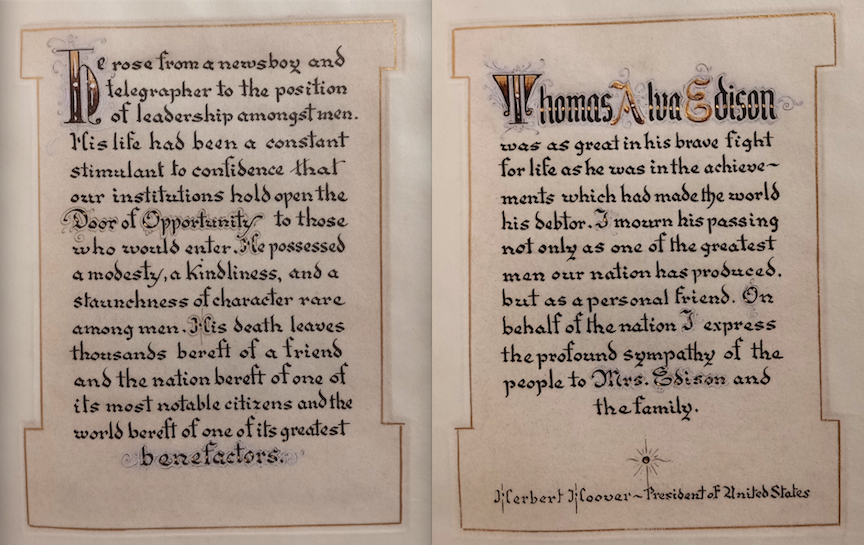 He rose from a newsboy and
telegrapher to the position
of leadership amongst men.
His life had been a constant
stimulant to confidence that
our institutions hold open the
Door of Opportunity to those
who would enter. He possessed
a modesty, a kindliness, and a
staunchness of character rare
among men. His death leaves
thousands bereft of a friend
and the nation bereft of one of
its most notable citizens and the
world bereft of one of its greatest
benefactors.
Thomas Alva Edison
was as great in his brave fight
for life as he was in the achieve-
ments which had made the world
his debtor. I mourn his passing
not only as one of the greatest
men our nation has produced,
but as a personal friend. On
behalf of the nation I express
the profound sympathy of the
people to Mrs. Edison and
the family.
Herbert Hoover ~ President of United States